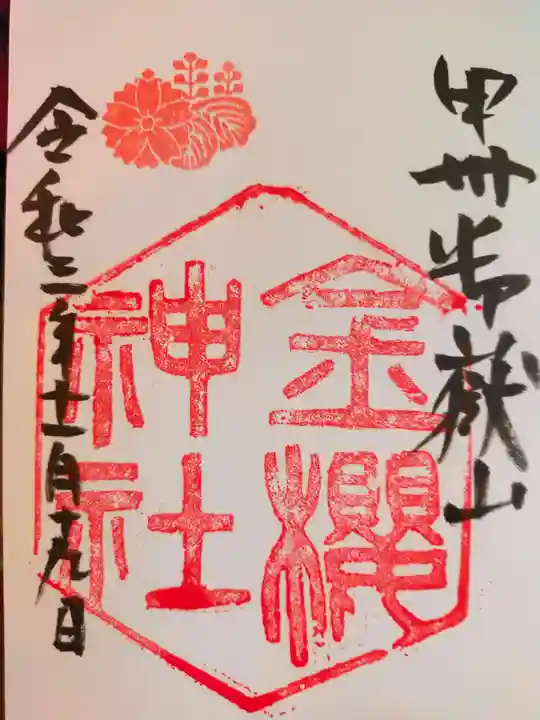 甲州御嶽山
金櫻
神社
令和三年十一月十九日